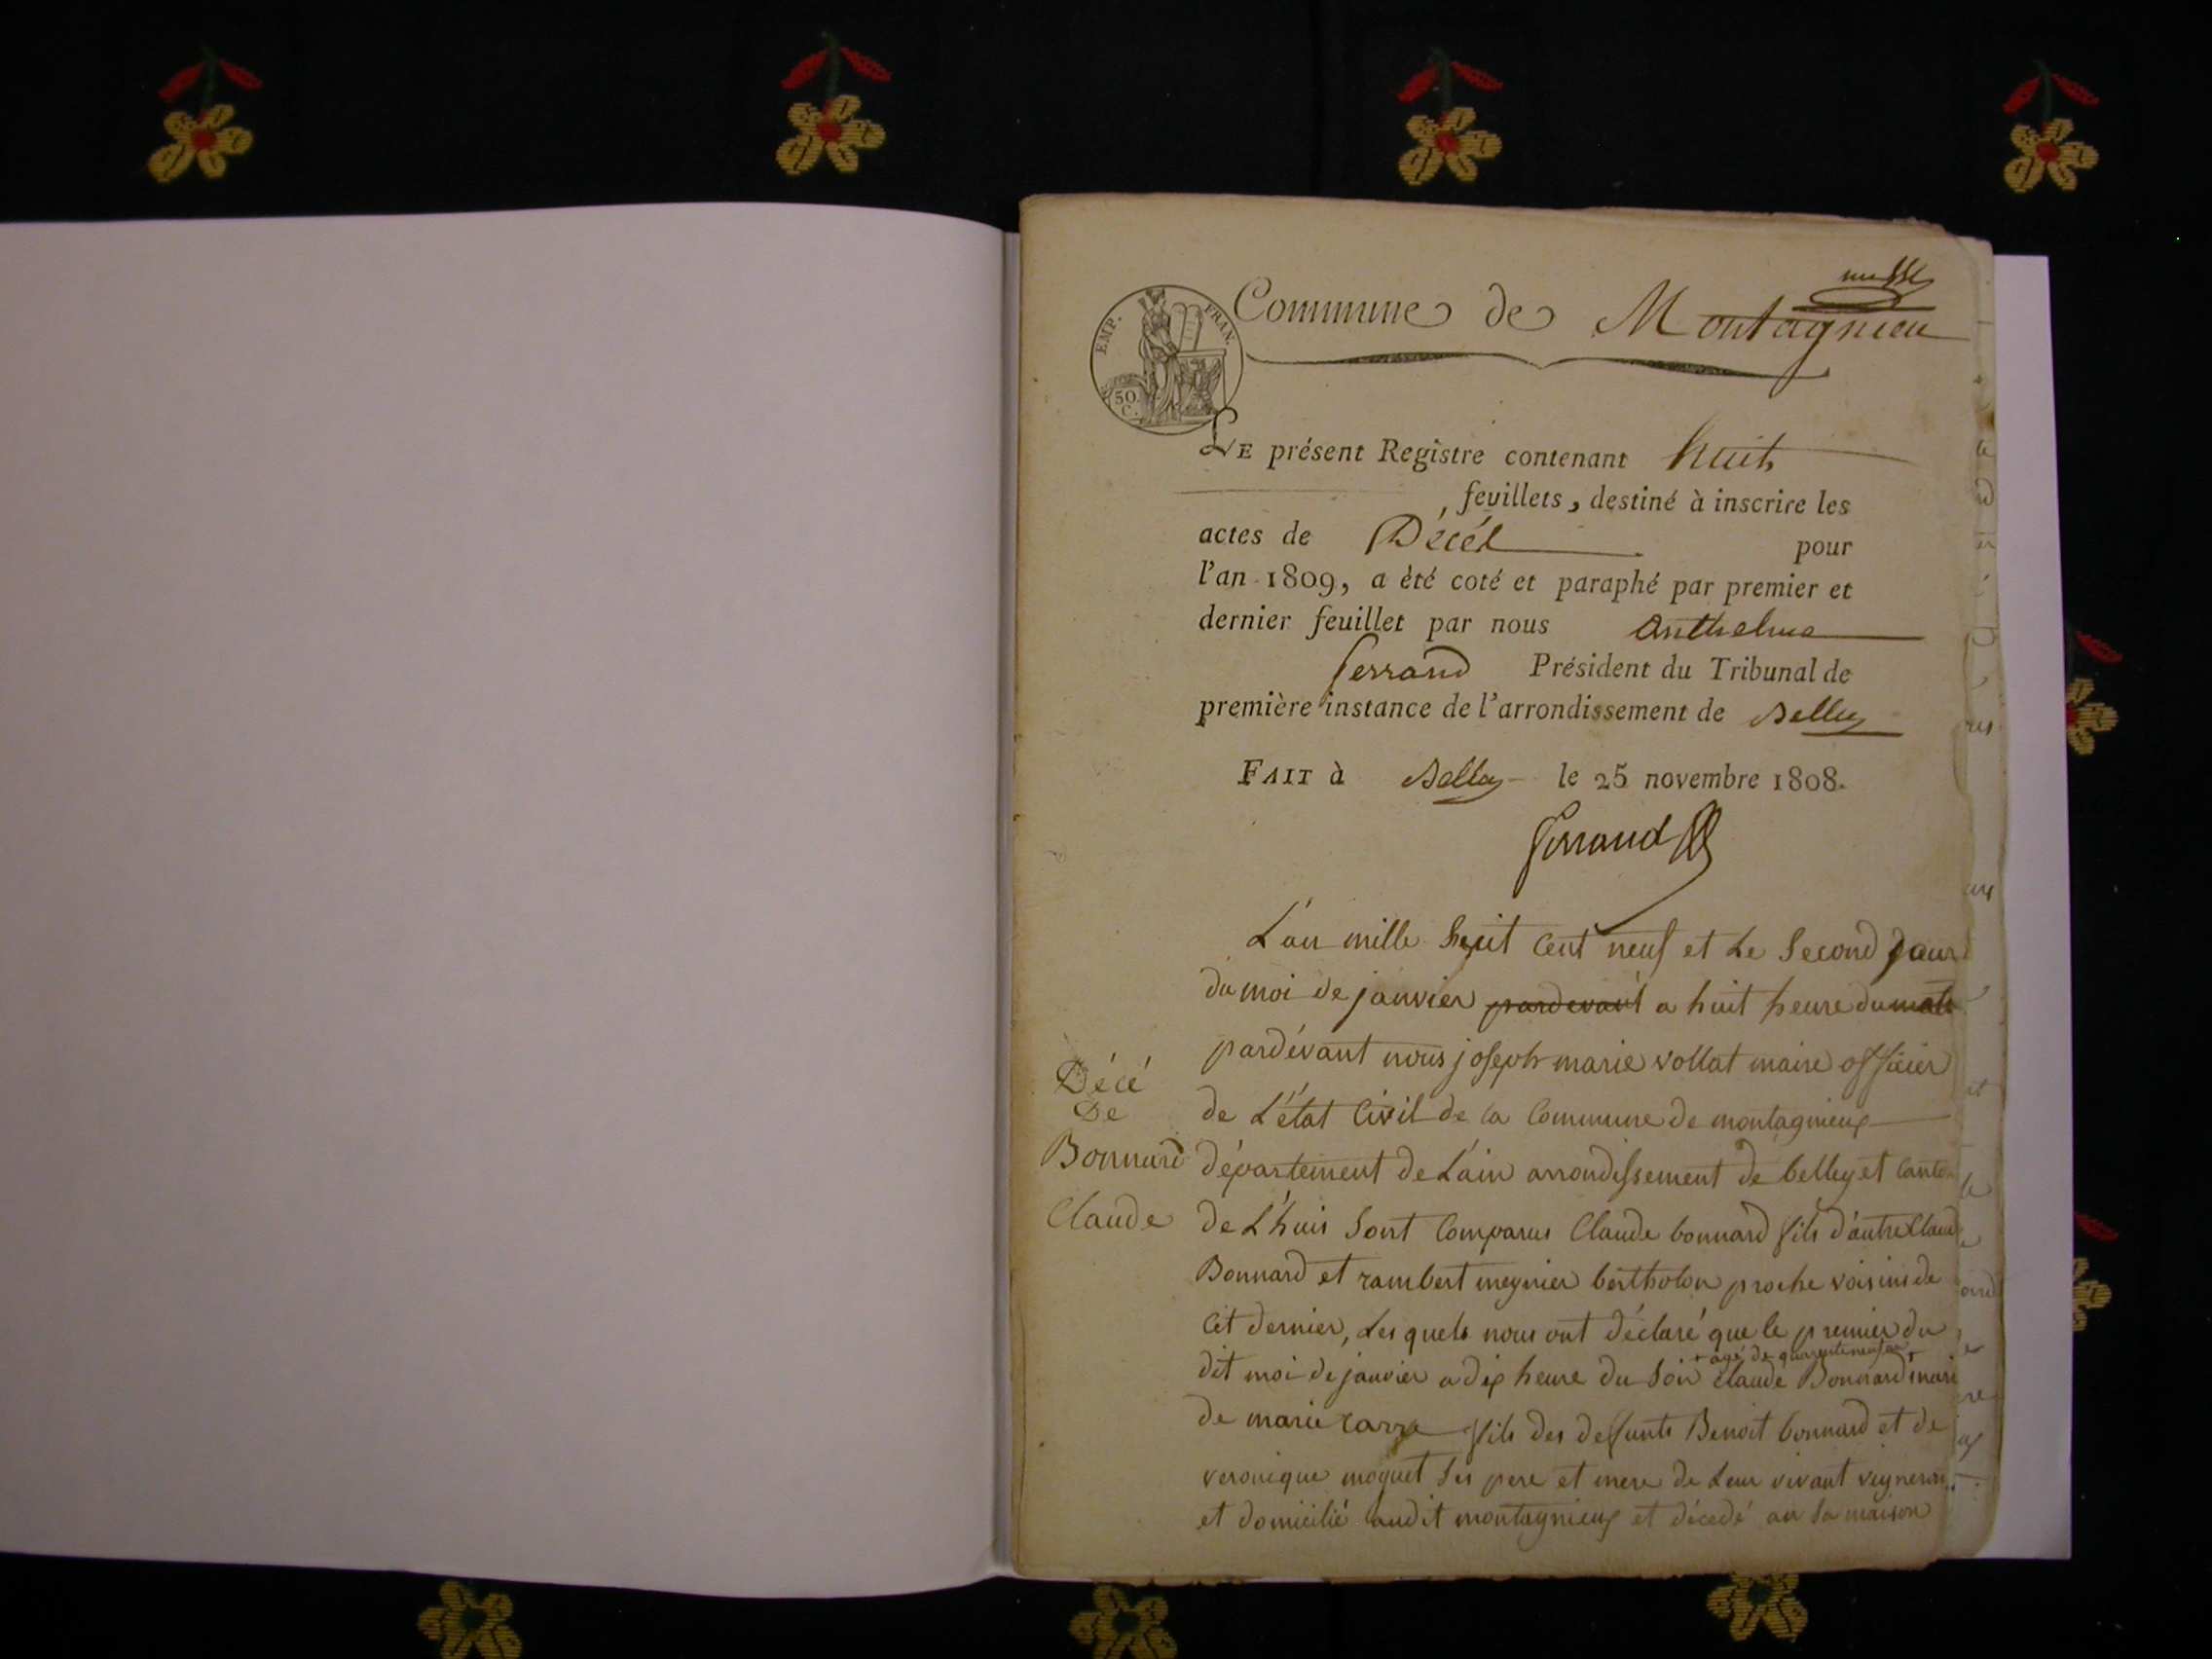 Commune de Montagnieu
EMP. FRAN.
50.
C.
LE présent Registre contenant huit
feuillets, destiné à inscrire les
actes de Décès pour
l'an 1809, a été coté et paraphé par premier et
dernier feuillet par nous Anthelme
ferrand Président du Tribunal de
première instance de l'arrondissement de Belley
FAIT à Belley le 25 novembre 1808.
ferrand
L'an mille huit cent neuf et le second jour
du moi de janvier pardevant a huit heure du matin
pardévant nous joseph marie vollat maire officier
de L'état Civil de la Commune de montagnieux
département de L'ain arrondissement de belley et Canton
de L'huis sont Comparus Claude bonnard fils d'autre Claude
Bonnard et rambert meynier bertholon proche voisins de
cit dernier, Les quels nous ont déclaré que le premier du
+ agé de quarente neuf an +
dit moi de janvier a dix heure du soir Claude Bonnard + mari
de marie fils des defunts Benoit bonnard et de
veronique moquet ses pere et mere de Leur vivant veigneron
et domicilié audit montagnieux et décedé an sa maison
Décé
De
Bonnard
Claude